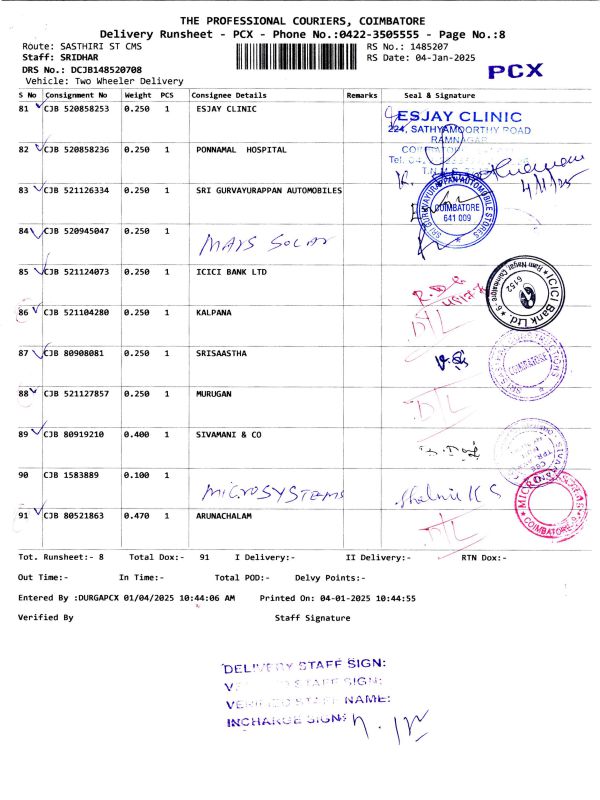 THE PROFESSIONAL COURIERS, COIMBATORE
Delivery Runsheet - PCX - Phone No.:0422-3505555 - Page No.:8
Route: SASTHIRI ST CMS
RS No.: 1485207
Staff: SRIDHAR
RS Date: 04-Jan-2025
DRS No.: DCJB148520708
PCX
Vehicle: Two Wheeler Delivery
S No Consignment No Weight PCS Consignee Details Remarks Seal & Signature
81 CJB 520858253 0.250 1 ESJAY CLINIC
ESJAY CLINIC
224, SATHYAMOORTHY ROAD
RAMNAGAR
82 CJB 520858236 0.250 1 PONNAMAL HOSPITAL
4/1/25
83 CJB 521126334 0.250 1 SRI GURVAYURAPPAN AUTOMOBILES
SRI GURUVAYURAPPAN AUTOMOBILE STORES
COIMBATORE
641 009
84 CJB 520945047 0.250 1 MAYS SOLAR
85 CJB 521124073 0.250 1 ICICI BANK LTD
ICICI Bank Ltd.
Ram Nagar, Coimbatore - 9
6152
86 CJB 521104280 0.250 1 KALPANA
D/L
87 CJB 80908081 0.250 1 SRISAASTHA
COIMBATORE
88 CJB 521127857 0.250 1 MURUGAN
D/L
89 CJB 80919210 0.400 1 SIVAMANI & CO
90 CJB 1583889 0.100 1 MICROSYSTEMS
COIMBATORE-9
91 CJB 80521863 0.470 1 ARUNACHALAM
D/L
Tot. Runsheet:- 8 Total Dox:- 91 I Delivery:- II Delivery:- RTN Dox:-
Out Time:- In Time:- Total POD:- Delvy Points:-
Entered By :DURGAPCX 01/04/2025 10:44:06 AM Printed On: 04-01-2025 10:44:55
Verified By Staff Signature
DELIVERY STAFF SIGN:
STAFF SIGN:
VERIFIED STAFF NAME:
INCHARGE SIGN: